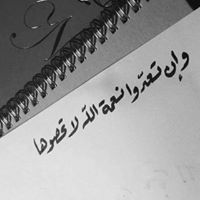 وإن تعدوا نعمة الله لا تحصوها
N